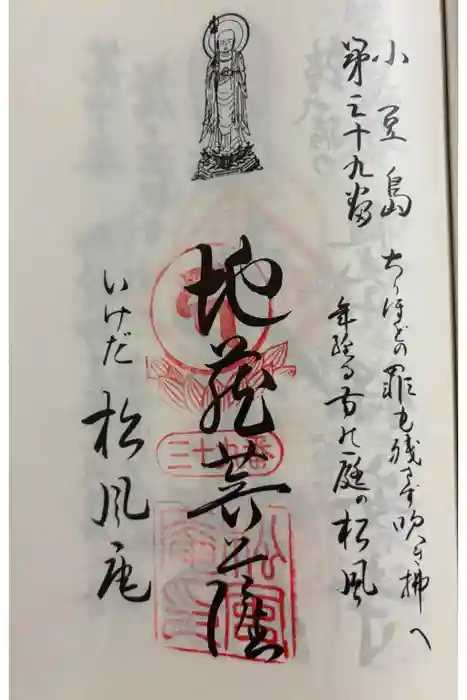 小豆島
第三十九番
ちりほどの罪も残さず吹き拂へ
年経る 庭の松風
地蔵菩薩
三十九番
いけだ 松風庵